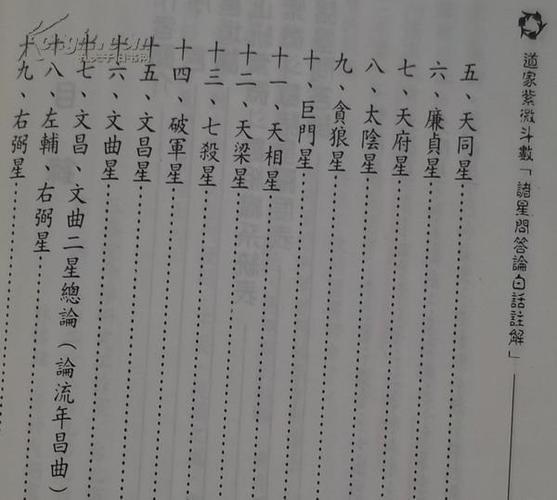 道家紫微斗數「諸星問答論白話註解」
五、天同星
六、廉貞星
七、天府星
八、太陰星
九、貪狼星
十、巨門星
十一、天相星
十二、天梁星
十三、七殺星
十四、破軍星
十五、文昌星
十六、文曲星
十七、文昌、文曲二星總論（論流年昌曲）
十八、左輔、右弼星
十九、右弼星